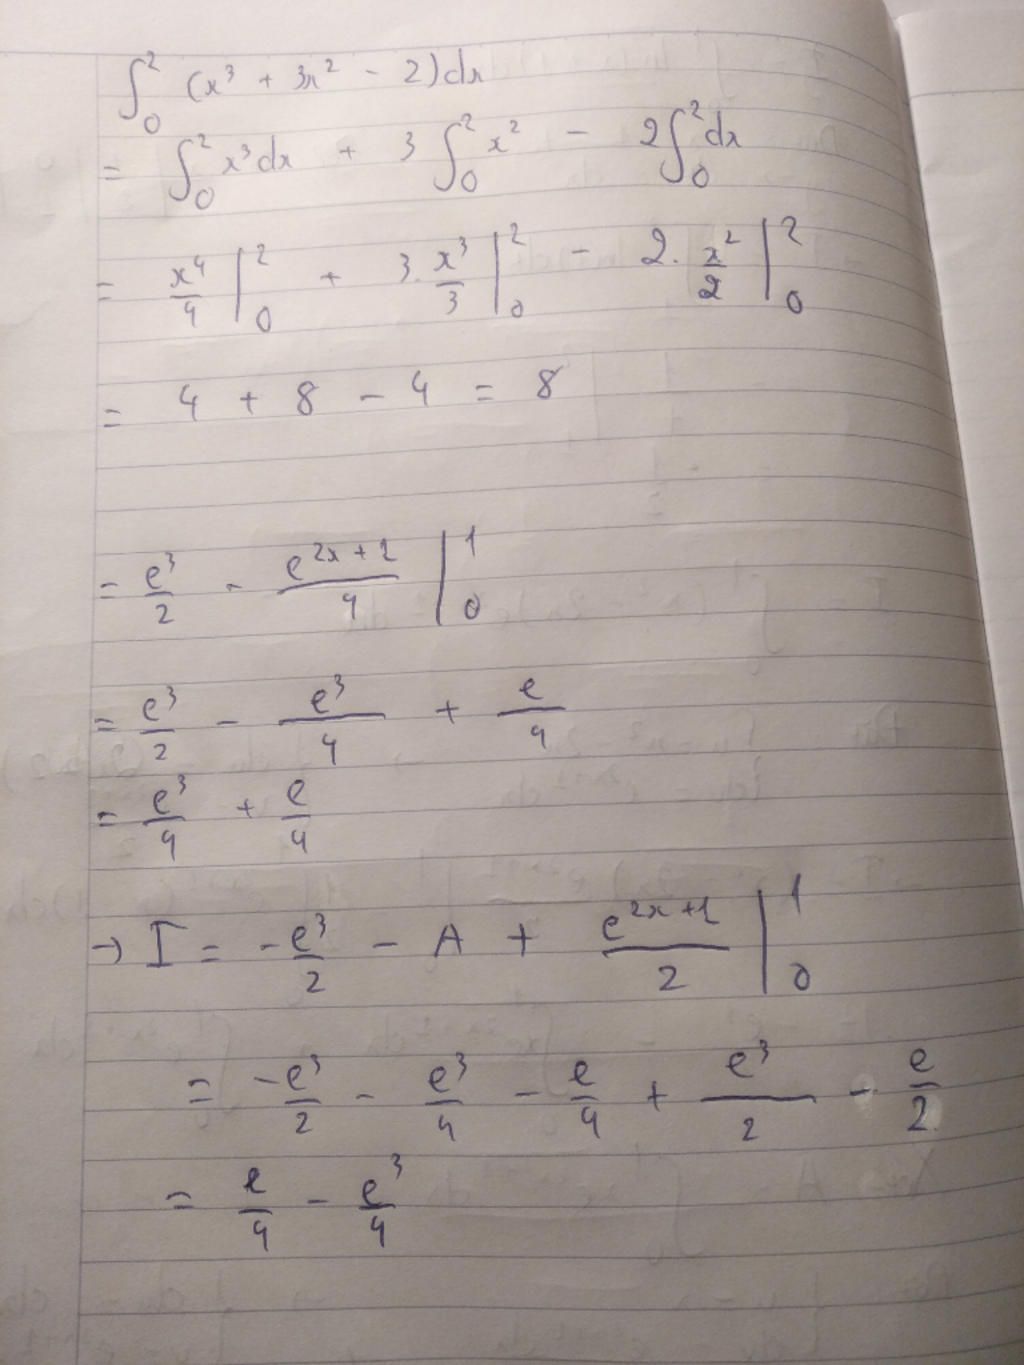 ∫₀² (x³ + 3x² - 2)dx
= ∫₀² x³dx + 3 ∫₀² x² - 2∫₀² dx
= x⁴/4 |₀² + 3. x³/3 |₀² - 2. x²/2 |₀²
= 4 + 8 - 4 = 8
= e³/2 - e^(2x+1)/4 |₀¹
= e³/2 - e³/4 + e/4
= e³/4 + e/4
→ I = -e³/2 - A + e^(2x+1)/2 |₀¹
= -e³/2 - e³/4 - e/4 + e³/2 - e/2
= e/4 - e³/4